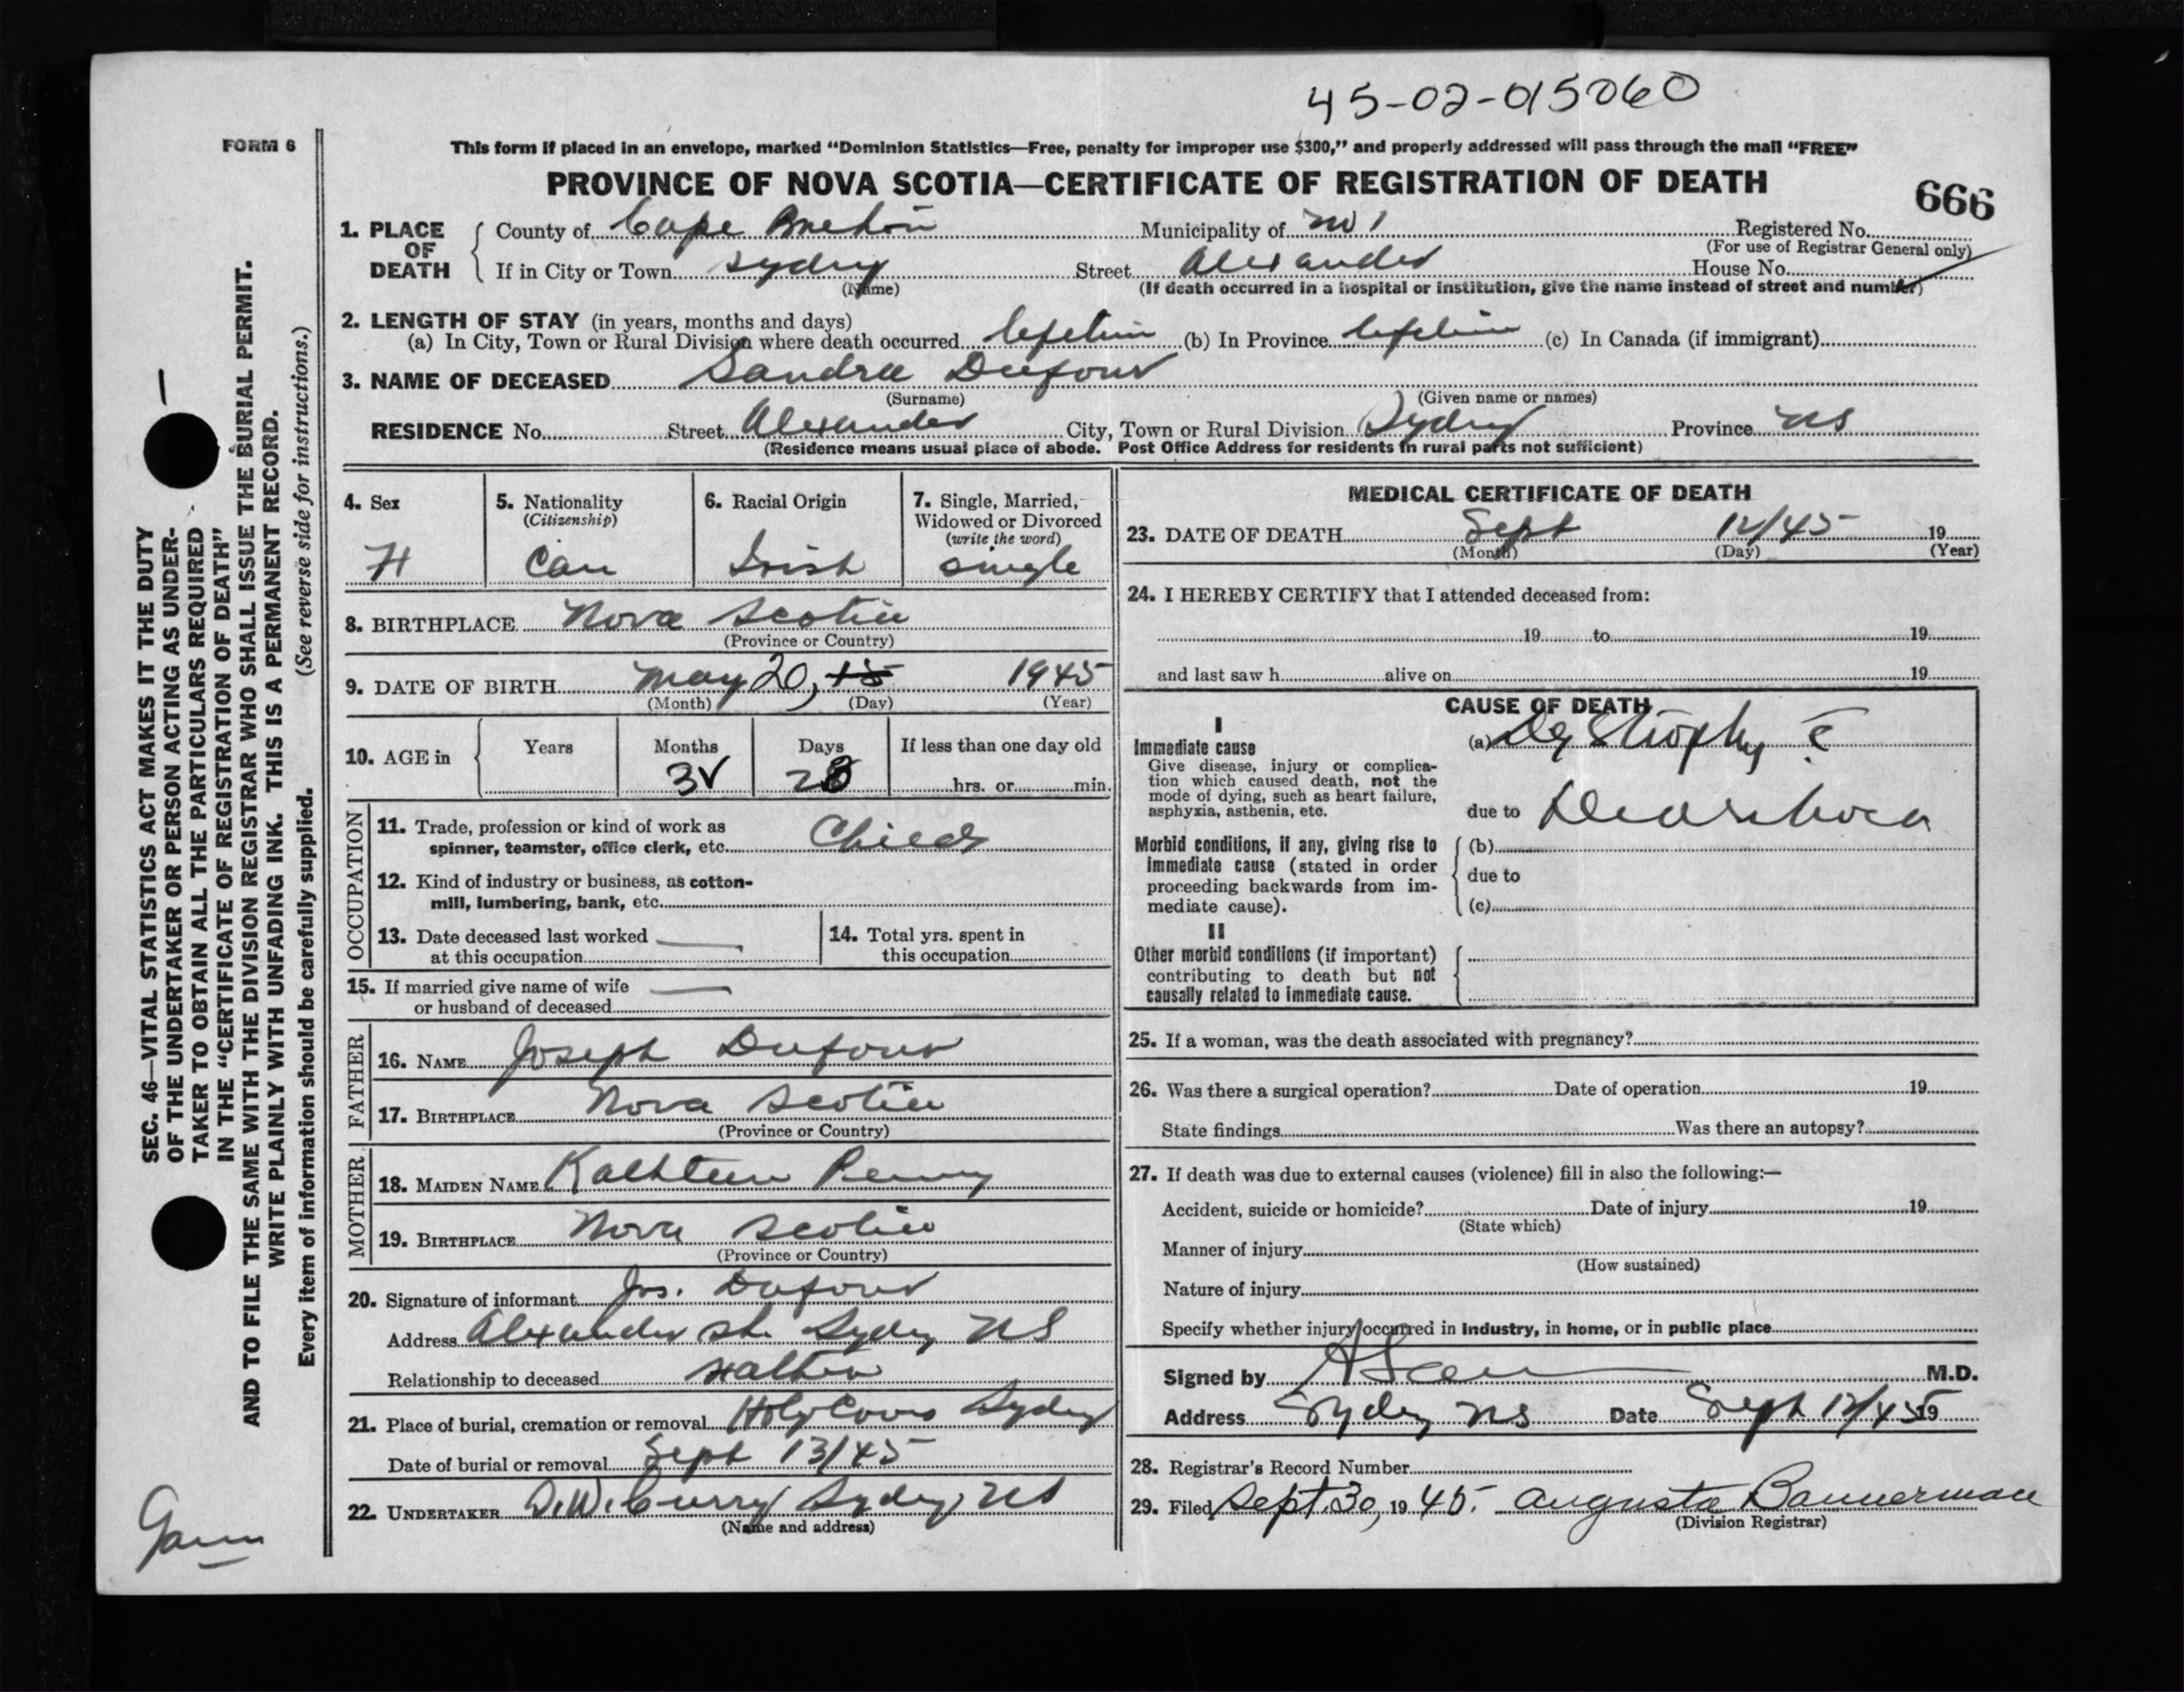 45-02-015060
FORM 6
This form if placed in an envelope, marked “Dominion Statistics—Free, penalty for improper use $300,” and properly addressed will pass through the mail “FREE”
PROVINCE OF NOVA SCOTIA—CERTIFICATE OF REGISTRATION OF DEATH
666
1. PLACE OF DEATH
County of Cape Breton Municipality of No 1 Registered No.
(For use of Registrar General only)
If in City or Town Sydney Street Alexander House No.
(Name) (If death occurred in a hospital or institution, give the name instead of street and number)
2. LENGTH OF STAY (in years, months and days)
(a) In City, Town or Rural Division where death occurred Lifetime (b) In Province Lifetime (c) In Canada (if immigrant)
3. NAME OF DECEASED Sandra Dufour
(Surname) (Given name or names)
RESIDENCE No. Street Alexander City, Town or Rural Division Sydney Province NS
(Residence means usual place of abode. Post Office Address for residents in rural parts not sufficient)
4. Sex
F
5. Nationality
(Citizenship)
Can
6. Racial Origin
Irish
7. Single, Married,
Widowed or Divorced
(write the word)
single
8. BIRTHPLACE Nova Scotia
(Province or Country)
9. DATE OF BIRTH May 20, 15 1945
(Month) (Day) (Year)
10. AGE in
Years Months Days If less than one day old
3 23 hrs. or min.
OCCUPATION
11. Trade, profession or kind of work as
spinner, teamster, office clerk, etc. Child
12. Kind of industry or business, as cotton-
mill, lumbering, bank, etc.
13. Date deceased last worked
at this occupation
14. Total yrs. spent in
this occupation
15. If married give name of wife
or husband of deceased
FATHER
16. NAME Joseph Dufour
17. BIRTHPLACE Nova Scotia
(Province or Country)
MOTHER
18. MAIDEN NAME Kathleen Penny
19. BIRTHPLACE Nova Scotia
(Province or Country)
20. Signature of informant Jos. Dufour
Address Alexander St. Sydney NS
Relationship to deceased Father
21. Place of burial, cremation or removal Holy Cross Sydney
Date of burial or removal Sept 13/45
22. UNDERTAKER D.W. Curry Sydney, NS
(Name and address)
MEDICAL CERTIFICATE OF DEATH
23. DATE OF DEATH Sept 12/45 19
(Month) (Day) (Year)
24. I HEREBY CERTIFY that I attended deceased from:
19 to 19
and last saw h alive on 19
CAUSE OF DEATH
I
Immediate cause
Give disease, injury or complica-
tion which caused death, not the
mode of dying, such as heart failure,
asphyxia, asthenia, etc.
(a) Dystrophy c̄
due to Diarrhoea
Morbid conditions, if any, giving rise to
immediate cause (stated in order
proceeding backwards from im-
mediate cause).
(b)
due to
(c)
II
Other morbid conditions (if important)
contributing to death but not
causally related to immediate cause.
25. If a woman, was the death associated with pregnancy?
26. Was there a surgical operation? Date of operation 19
State findings Was there an autopsy?
27. If death was due to external causes (violence) fill in also the following:—
Accident, suicide or homicide? Date of injury 19
(State which)
Manner of injury
(How sustained)
Nature of injury
Specify whether injury occurred in industry, in home, or in public place
Signed by M.D.
Address Sydney NS Date Sept 12/45 19
28. Registrar's Record Number
29. Filed Sept. 30, 1945. Augusta Bannerman
(Division Registrar)
SEC. 46—VITAL STATISTICS ACT MAKES IT THE DUTY
OF THE UNDERTAKER OR PERSON ACTING AS UNDER-
TAKER TO OBTAIN ALL THE PARTICULARS REQUIRED
IN THE “CERTIFICATE OF REGISTRATION OF DEATH”
AND TO FILE THE SAME WITH THE DIVISION REGISTRAR WHO SHALL ISSUE THE BURIAL PERMIT.
WRITE PLAINLY WITH UNFADING INK. THIS IS A PERMANENT RECORD.
Every item of information should be carefully supplied. (See reverse side for instructions.)